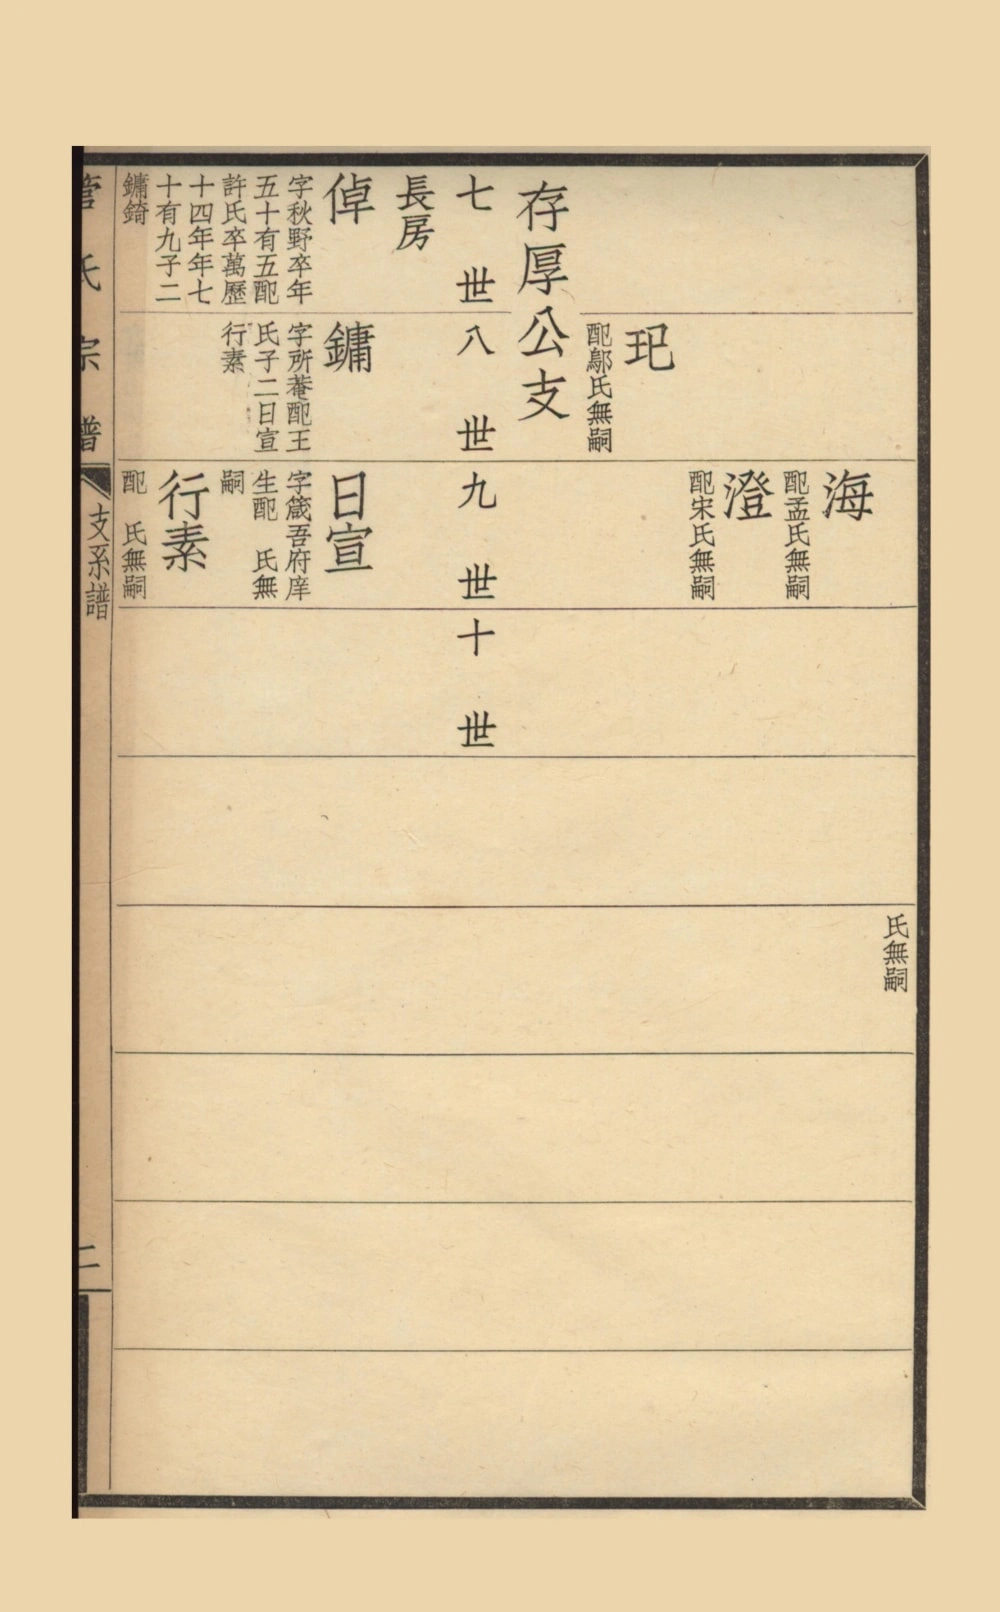 氏無嗣
海
配孟氏無嗣
澄
配宋氏無嗣
玘
配鄔氏無嗣
存厚公支
七世
八世
九世
十世
長房
倬
字秋野卒年
五十有五配
許氏卒萬歷
十四年年七
十有九子二
鏞錡
鏞
字所菴配王
氏子二日宣
行素
日宣
字箴吾府庠
生配 氏無
嗣
行素
配 氏無嗣
管氏宗譜
支系譜
二